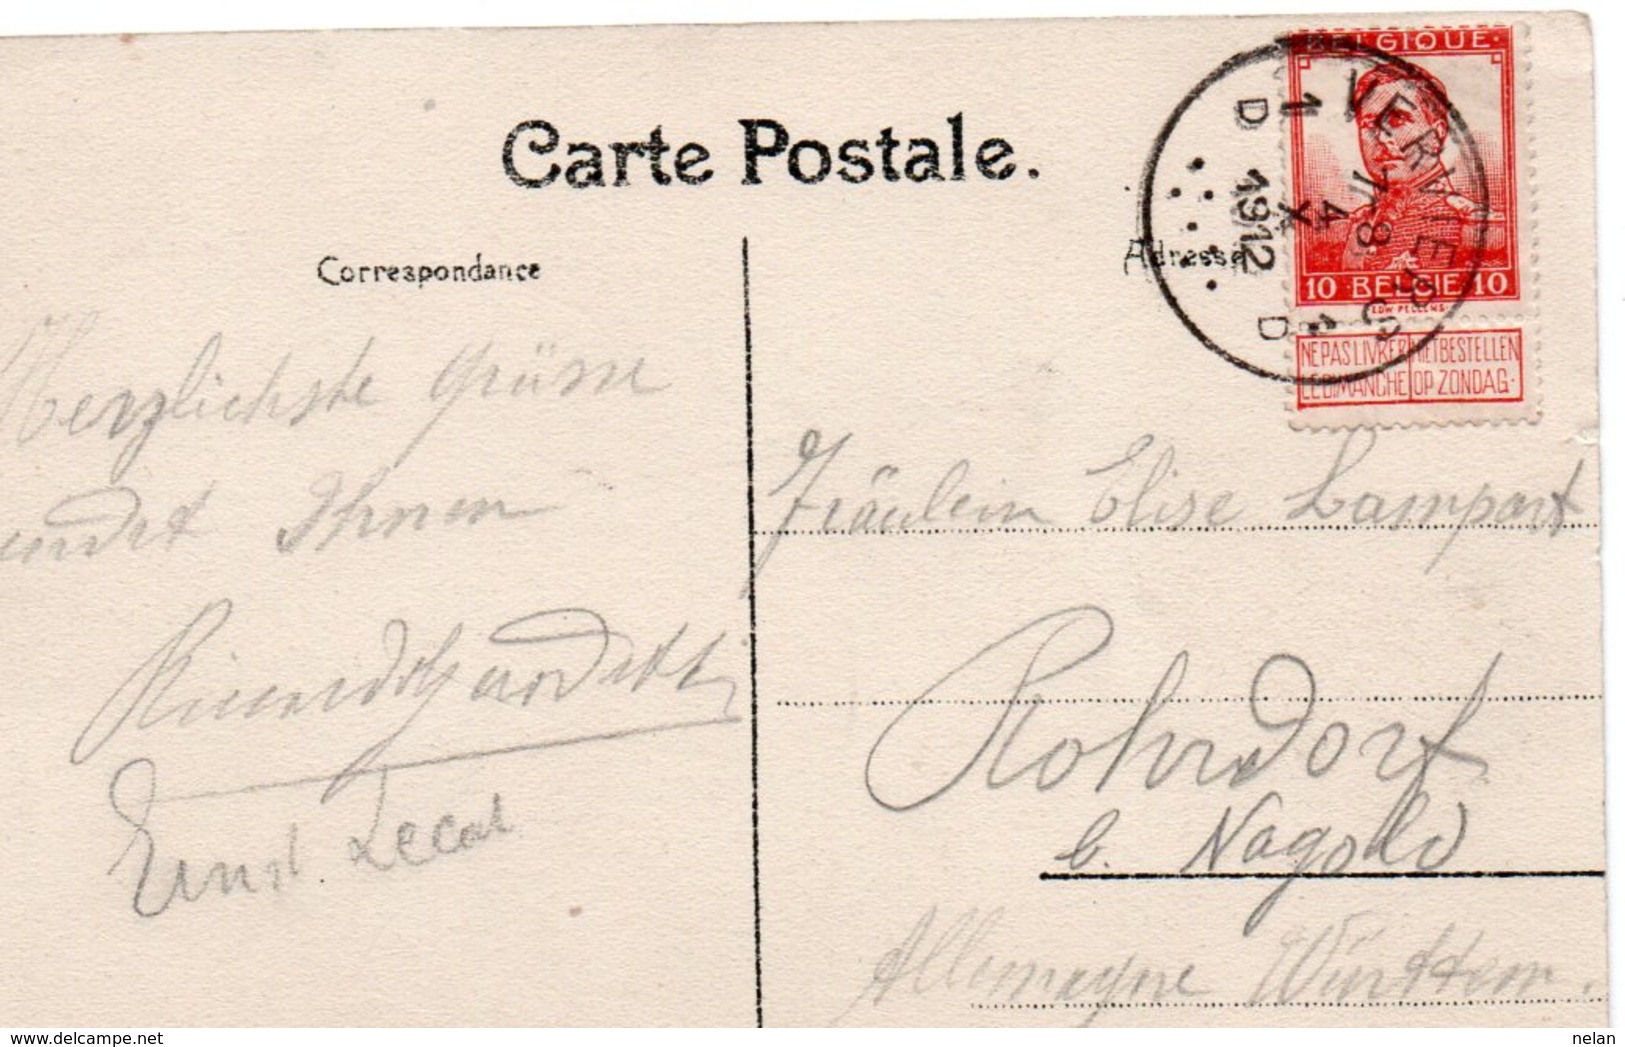 Carte Postale.
Correspondance
Adresse
BELGIQUE
10 BELGIË 10
EDW PELLENS
NE PAS LIVRER LE DIMANCHE
NIET BESTELLEN OP ZONDAG.
VERVIERS
4 X
1912
Herzlichste Grüsse
sendet Ihnen
Ernst
Fräulein Elise Lampart
Rohrdorf
b. Nagold
Allemagne Württem.
nelan